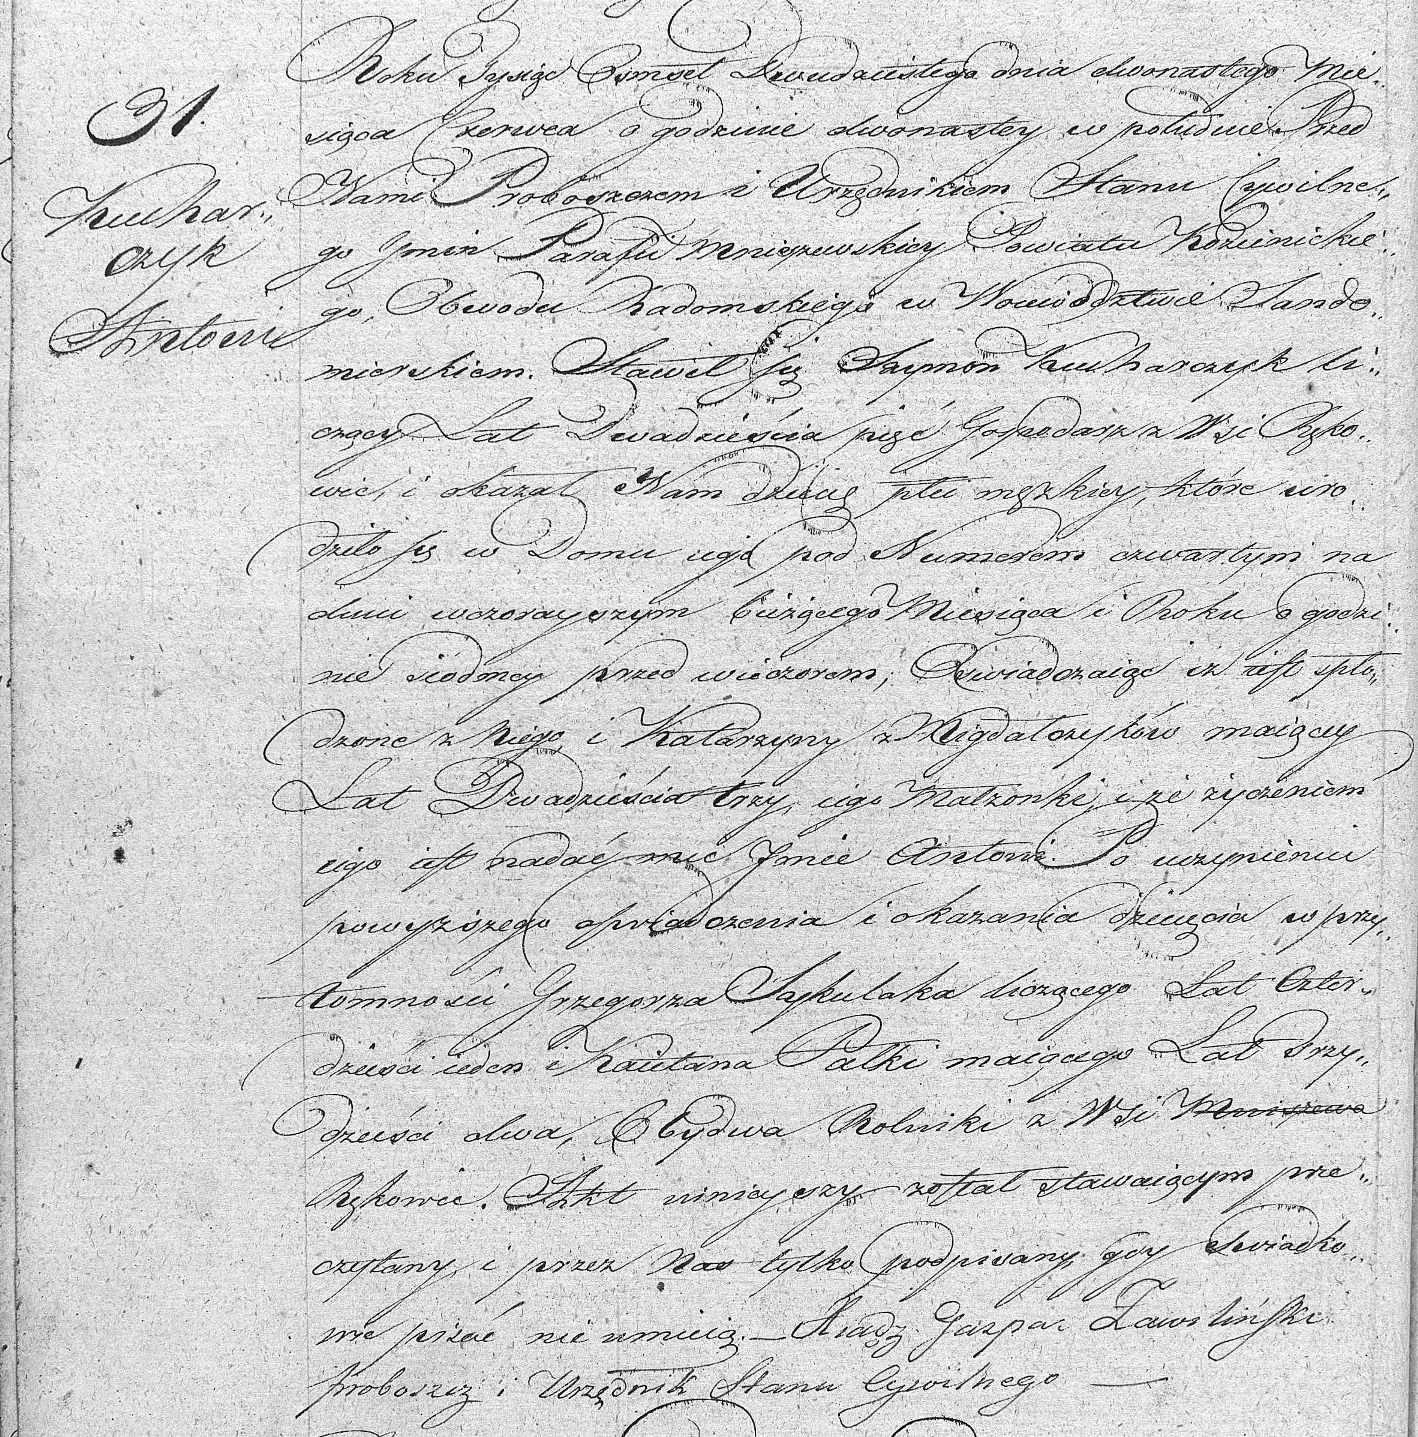 31.
Kuchar„
czyk
Antoni
Roku Tysiąc Osmset Dwudziestego dnia dwonastego Mie„
siąca Czerwca o godzinie dwonastey w południe. Przed
Nami Proboszczem i Urzędnikiem Stanu Cywilne„
go Gmin Parafii Mniszewskiey Powiatu Kozienickie„
go, Obwodu Radomskiego w Wowodztwie Sando„
mierskiem. Stawił się Szymon Kucharczyk li„
czący Lat Dwadzieścia pięć Gospodarz z Wsi Ręko„
wic, i okazał Nam dziecię płci męzkiey, które uro„
dziło się w Domu iego pod Numerem czwartym na
dniu wczorayszym bieżącego Miesiąca i Roku o godzi„
nie siódmey przed wieczorem; Oswiadczaiąc iż iest spło„
dzone z niego i Katarzyny z Migdalczyków maiącey
Lat Dwadzieścia trzy, iego Małzonki, i że życzeniem
iego iest nadać mu Jmie Antoni. Po uczynieniu
powyższego oświadczenia i okazania dziecięcia w przy„
tomności Grzegorza Saykulaka liczącego Lat Czter„
dzieści ieden i Kaietana Pałki maiącego Lat Trzy„
dzieści dwa, Obydwa Rolniki z Wsi Mniszewa
Rękowic. Akt ninieyszy został stawaiącym prze„
czytany i przez Nas tylko podpisany, gdy swiadko„
wie pisać nie umieią. — Xiądz Gaspar Zawiliński
proboszcz i Urzędnik Stanu Cywilnego —